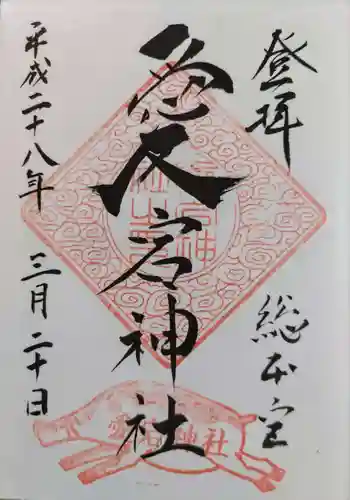 登拝
総本宮
愛宕神社
愛宕神社
平成二十八年 三月二十日